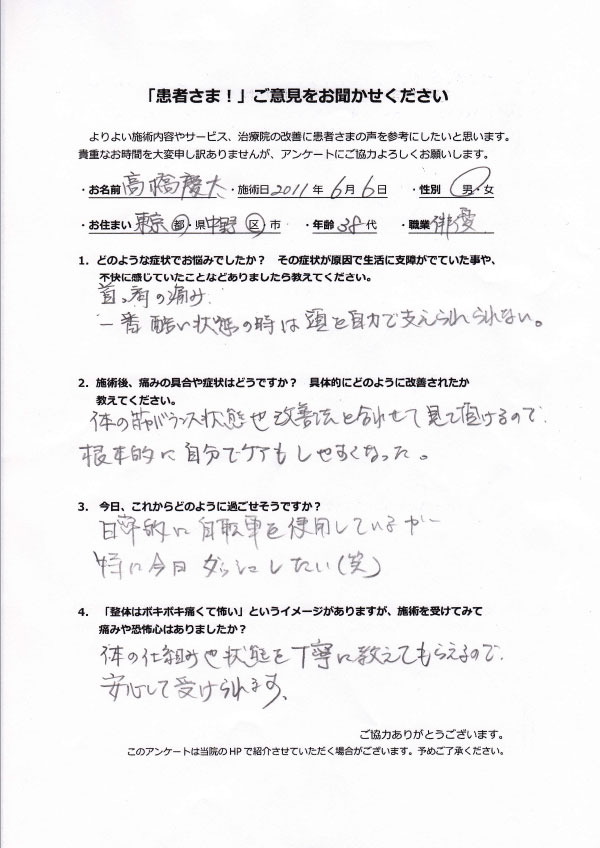 「患者さま！」ご意見をお聞かせください
よりよい施術内容やサービス、治療院の改善に患者さまの声を参考にしたいと思います。
貴重なお時間を大変申し訳ありませんが、アンケートにご協力よろしくお願いします。
・お名前 高橋慶太 ・施術日 2011 年 6 月 6 日 ・性別 男・女
・お住まい 東京 都・県 中野 区・市 ・年齢 38 代 ・職業 俳優
1. どのような症状でお悩みでしたか？ その症状が原因で生活に支障がでていた事や、
不快に感じていたことなどありましたら教えてください。
首、肩の痛み
一番酷い状態の時は頭を自力で支えられられない。
2. 施術後、痛みの具合や症状はどうですか？ 具体的にどのように改善されたか
教えてください。
体の筋バランス状態や改善法を合わせて見て頂けるので
根本的に自分でケアもしやすくなった。
3. 今日、これからどのように過ごせそうですか？
日常的に自転車を使用しているが
特に今日ダッシュしたい(笑)
4. 「整体はボキボキ痛くて怖い」というイメージがありますが、施術を受けてみて
痛みや恐怖心はありましたか？
体の仕組みや状態を丁寧に教えてもらえるので、
安心して受けられます、
ご協力ありがとうございます。
このアンケートは当院のHPで紹介させていただく場合がございます。予めご了承ください。